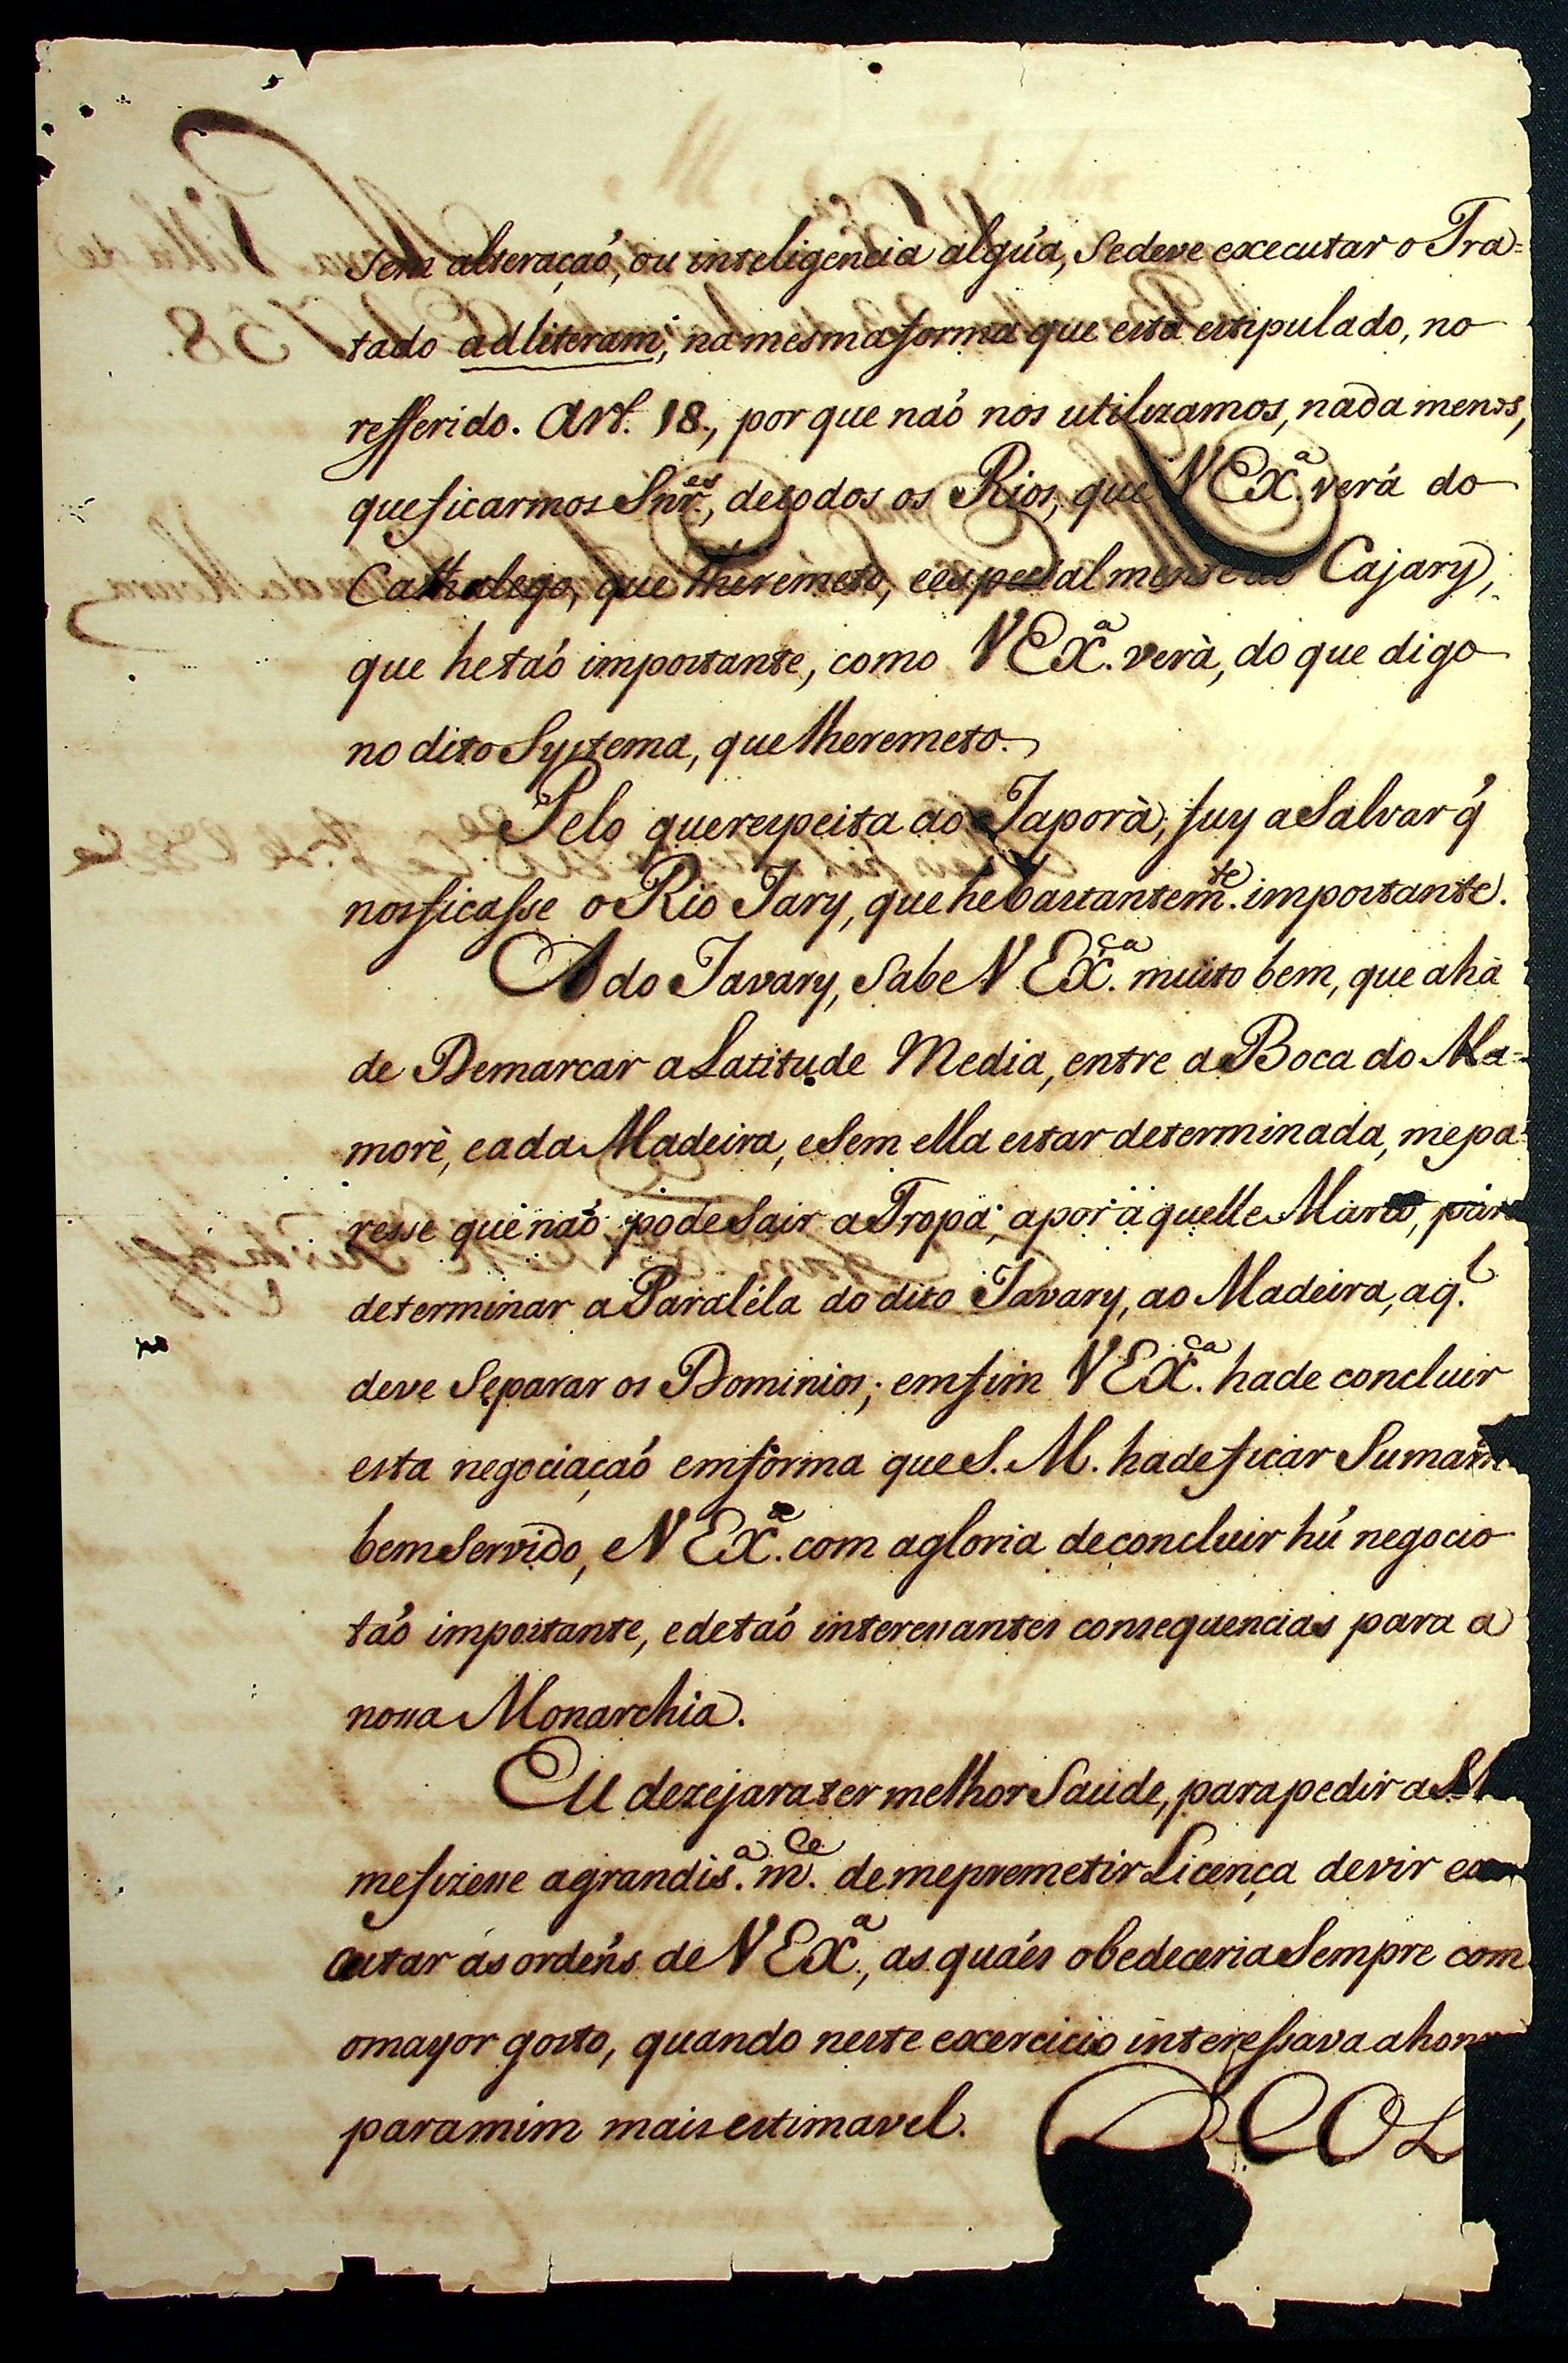 Sem alteraçaó, ou inteligencia algúa, Sedeve executar o Tra=
tado adliteram, namesmaforma que está estipulado, no
refferido. Art. 18., por que naó nos utilizamos, nada menos,
queficarmos Snr.es, detodos os Rios, que VEx.a verá do
Cathalogo, que lheremeto, eespecialmente do Cajary,
que hetaó importante, como VEx.a verà, do que digo
no dito Systema, que lheremeto.
Pelo querespeita ao Japorà, fuy aSalvar q́
nosficasse o Rio Jary, que hebastantem.te importante.
A do Javary, Sabe VEx.ca muito bem, que ahà
de Demarcar a Latitude Media, entre aBoca do Ma=
morè, eada Madeira, eSem ella estar determinada, mepa=
resse que naó podeSair aTropa; apor aquelle Marco, para
determinar aParaléla do dito Javary, ao Madeira, aq.l
deve Separar os Dominios; emfim VEx.ca hade concluir
esta negociaçaó emforma que S. M. hadeficar
bemServido, e VEx.a com agloria deconcluir hú negocio
táo importante, edetaó interessantes consequencias para a
nossa Monarchia.
Eu dezejarater melhor Saude, parapedir a
mefizesse agrandis.a m.ce de mepremetir Licença devir
cutar ás ordéns de VEx.a, as quáes obedeceriaSempre com
omayor gosto, quando neste excercicio interessava
paramim mais estimavel.